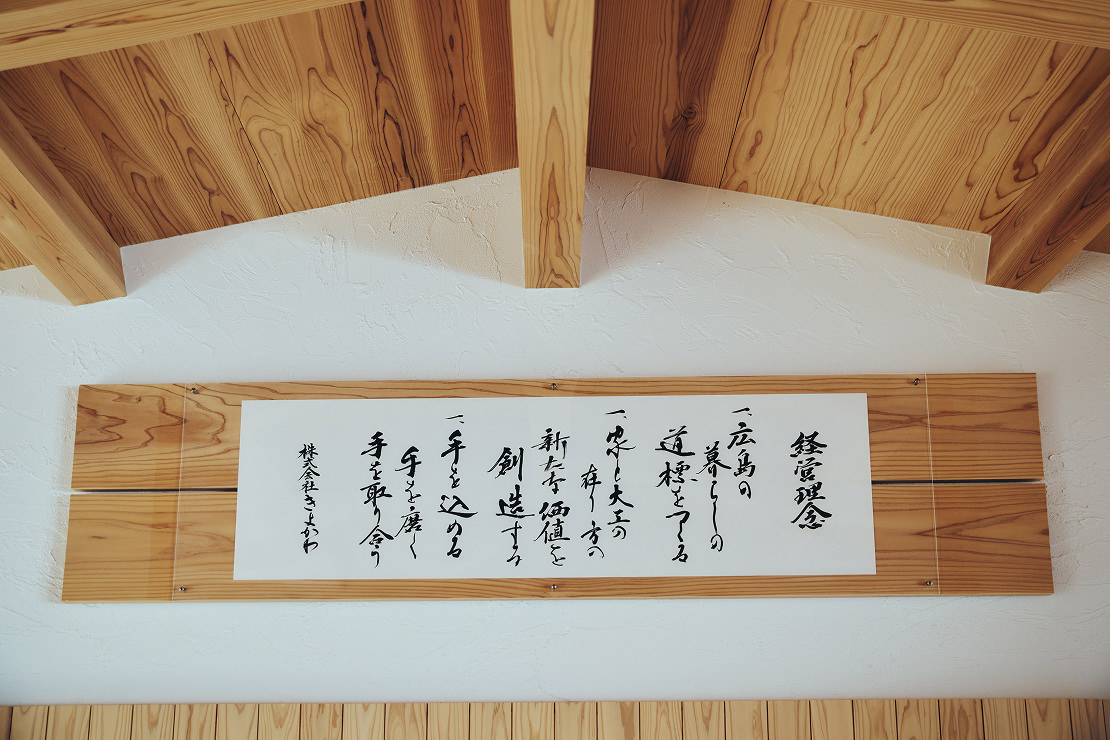 経営理念
一、広島の
暮らしの
道標をつくる
一、家と大工の
在り方の
新たな価値を
創造する
一、手を込める
手を磨く
手を取り合う
株式会社きよかわ